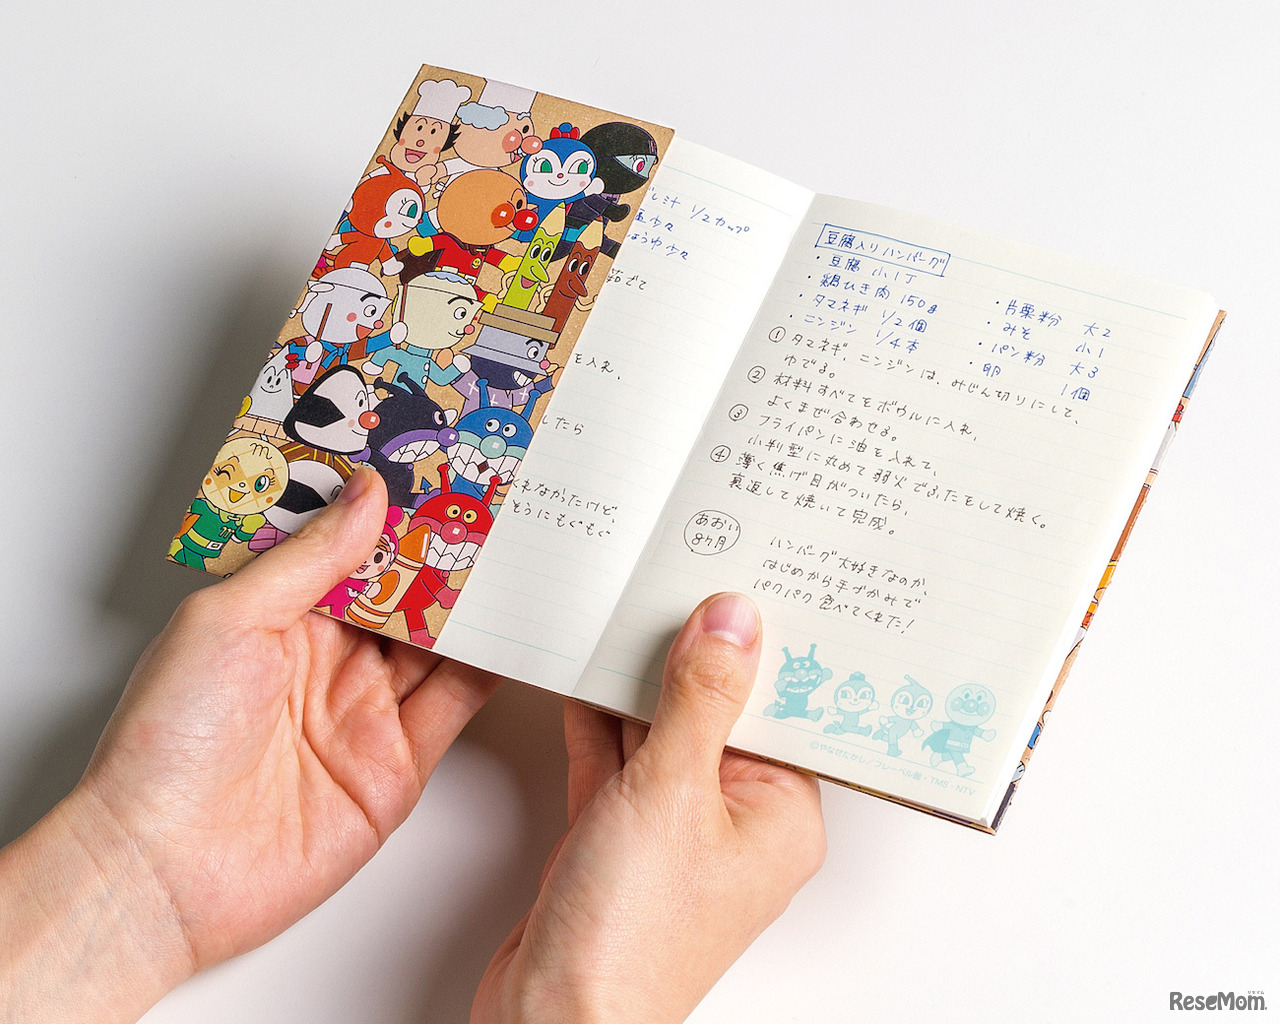 だし汁 1/2カップ
塩少々
しょうゆ少々
茹でて
を入れ、
したら
くれなかったけど、
そうにもぐもぐ
豆腐入りハンバーグ
・豆腐 小1丁
・鶏ひき肉 150g
・タマネギ 1/2個
・ニンジン 1/4本
・片栗粉 大2
・みそ 小1
・パン粉 大3
卵 1個
① タマネギ、ニンジンは、みじん切りにして、
ゆでる。
② 材料すべてをボウルに入れ、
よくまぜ合わせる。
③ フライパンに油を入れて、
小判型に丸めて弱火でふたをして焼く。
④ 薄く焦げ目がついたら、
裏返して焼いて完成。
あおい
8ヶ月
ハンバーグ大好きなのか、
はじめから手づかみで
パクパク食べてくれた!
©やなせたかし/フレーベル館・TMS・NTV
ReseMom.